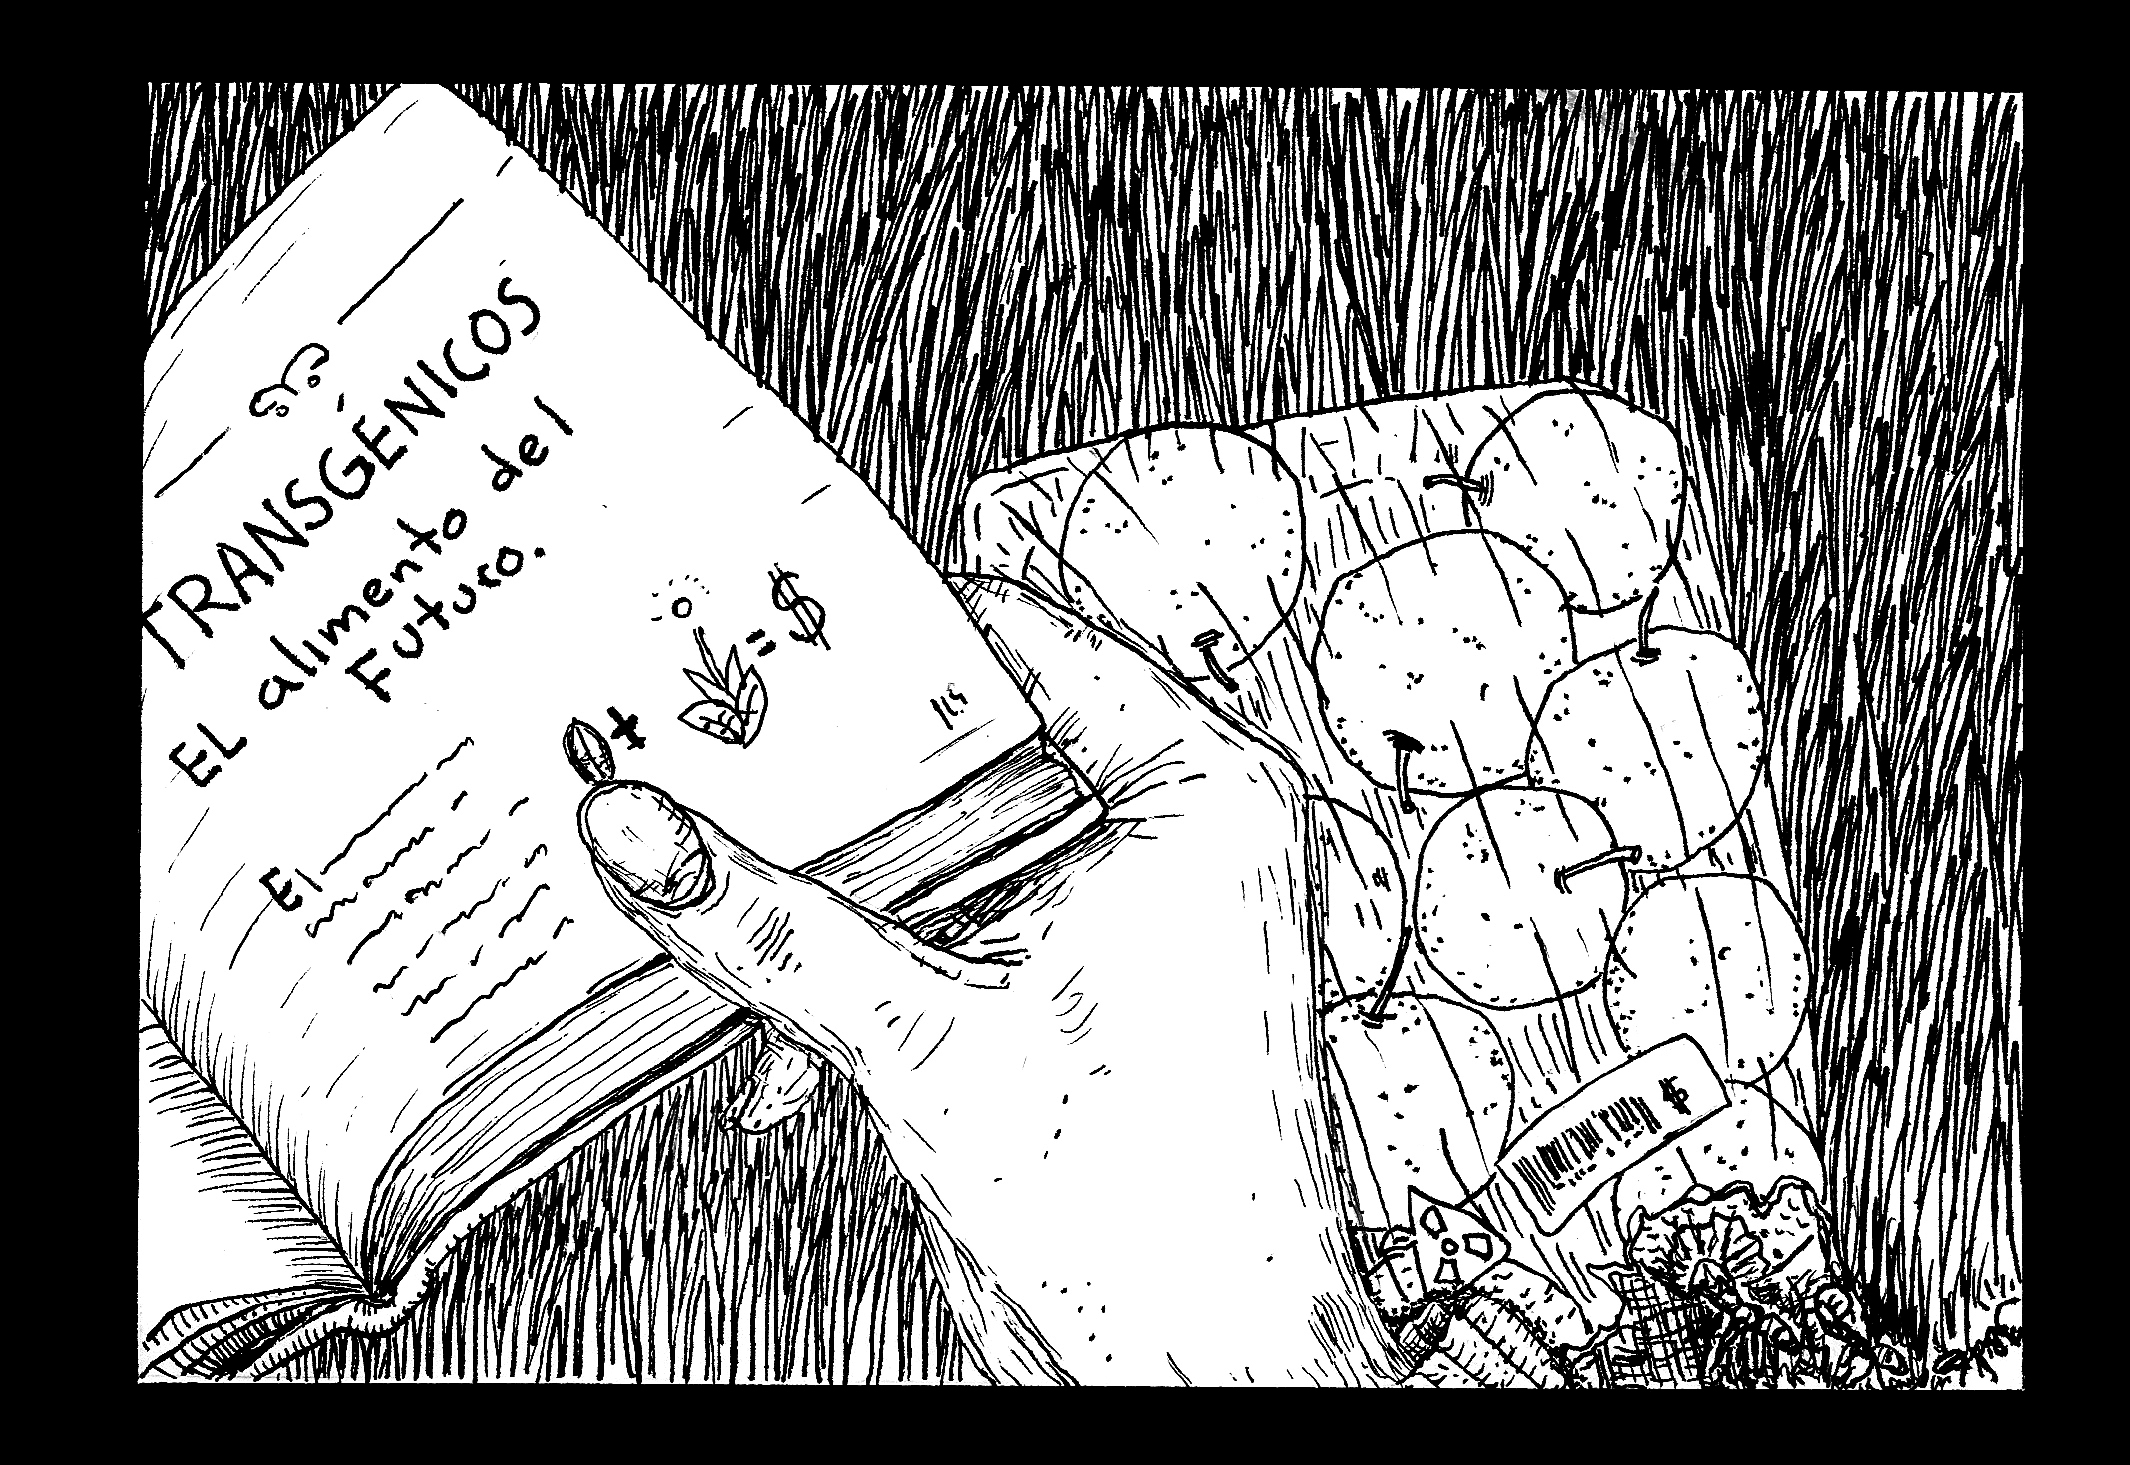 TRANSGÉNICOS
EL alimento del
Futuro.
+ = $
El
$